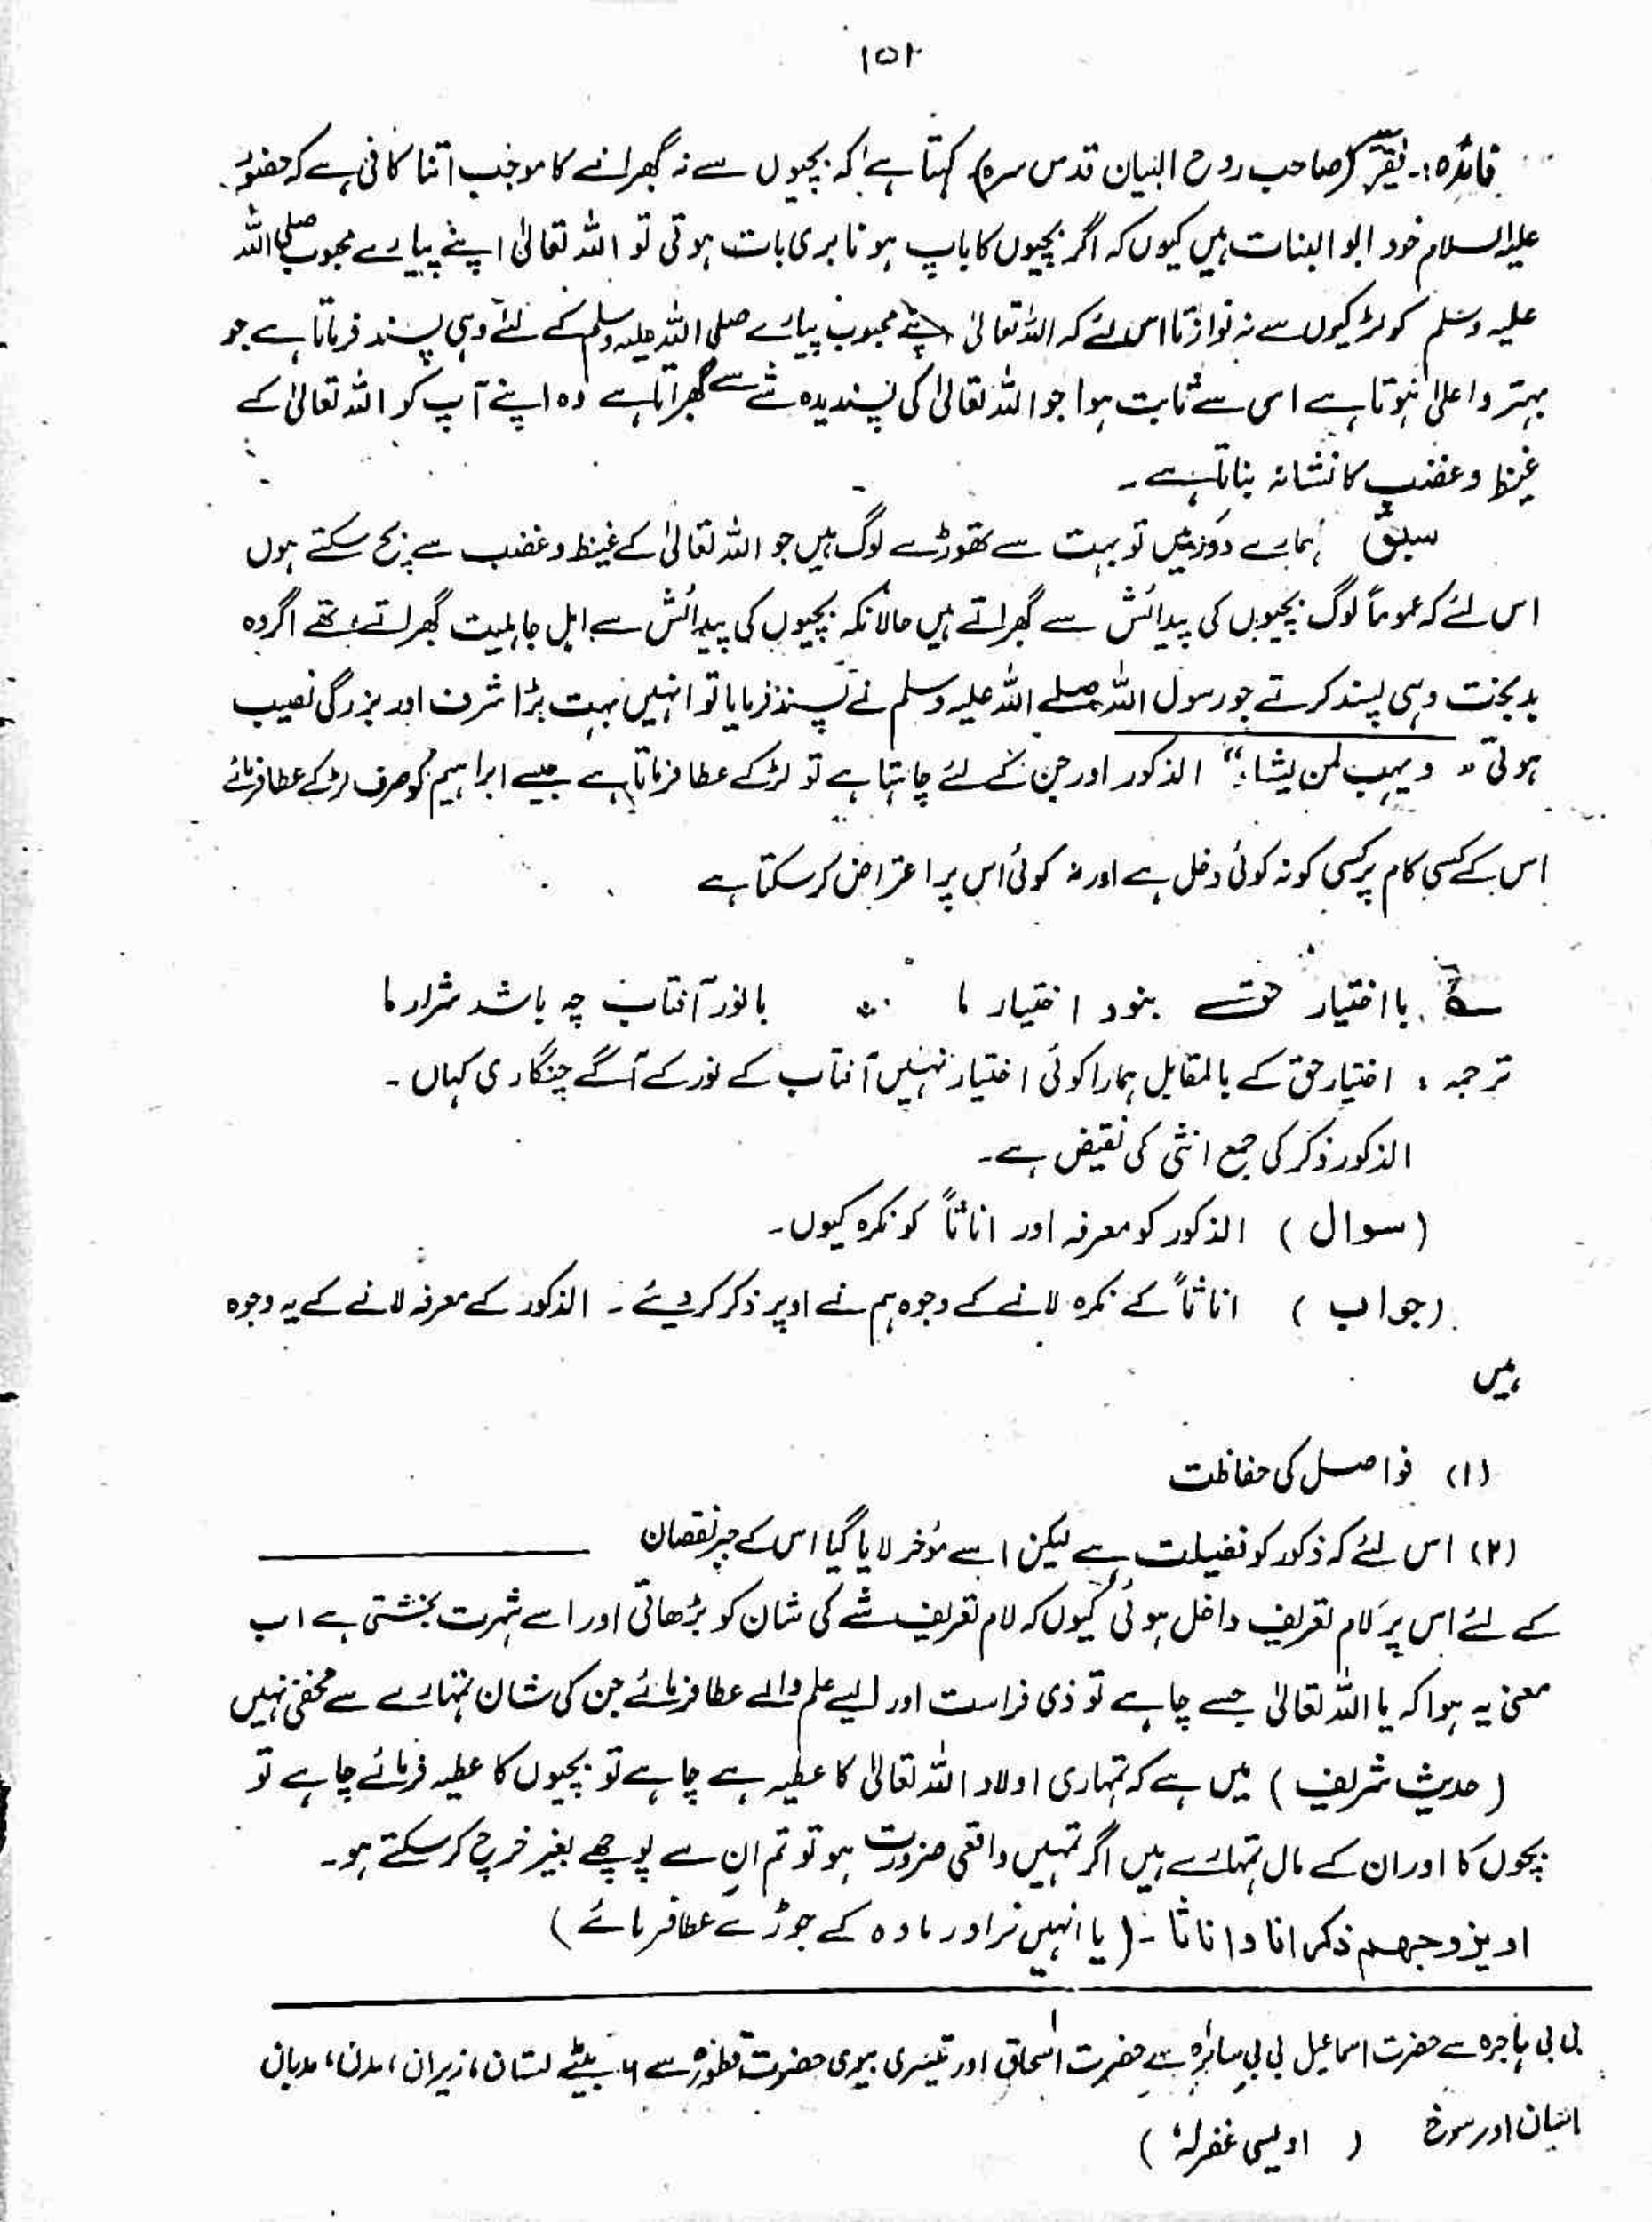 ۱۵۲
فائدہ:۔ فقیر (صاحب روح البیان قدس سرہ) کہتا ہے کہ بچیوں سے نہ گھبرانے کا موجب اتنا کافی ہے کہ حضور
علیہ السلام خود ابو البنات ہیں کیوں کہ اگر بچیوں کا باپ ہونا بری بات ہوتی تو اللہ تعالیٰ اپنے پیارے محبوب صلی اللہ
علیہ وسلم کو لڑکیوں سے نہ نوازتا اس لئے کہ اللہ تعالیٰ اپنے محبوب پیارے صلی اللہ علیہ وسلم کے لئے وہی پسند فرماتا ہے جو
بہتر و اعلیٰ ہوتا ہے اس سے ثابت ہوا جو اللہ تعالیٰ کی پسندیدہ شے سے گھبراتا ہے وہ اپنے آپ کو اللہ تعالیٰ کے
غیظ و غضب کا نشانہ بناتا ہے ۔
سبق ہمارے دور میں تو بہت سے تھوڑے لوگ ہیں جو اللہ تعالیٰ کے غیظ و غضب سے بچ سکتے ہوں
اس لئے کہ عموماً لوگ بچیوں کی پیدائش سے گھبراتے ہیں حالانکہ بچیوں کی پیدائش سے اہل جاہلیت گھبراتے تھے اگر وہ
بدبخت وہی پسند کرتے جو رسول اللہ صلے اللہ علیہ وسلم نے پسند فرمایا تو انہیں بہت بڑا شرف اور بزرگی نصیب
ہوتی " ویہب لمن یشاء" الذکور اور جن کے لئے چاہتا ہے تو لڑکے عطا فرماتا ہے جیسے ابراہیم کو صرف لڑکے عطا فرمائے
اس کے کسی کام پر کسی کو نہ کوئی دخل ہے اور نہ کوئی اس پر اعتراض کر سکتا ہے
با اختیار حق نبود اختیار ما ؞ با نور آفتاب چہ باشد شرار ما
ترجمہ : اختیار حق کے بالمقابل ہمارا کوئی اختیار نہیں آفتاب کے نور کے آگے چنگاری کہاں ۔
الذکور ذکر کی جمع انثیٰ کی نقیض ہے۔
(سوال) الذکور کو معرفہ اور اناثاً کو نکرہ کیوں۔
(جواب) اناثاً کے نکرہ لانے کے وجوہ ہم نے اوپر ذکر کر دیئے ۔ الذکور کے معرفہ لانے کے یہ وجوہ
ہیں
(۱) فواصل کی حفاظت
(۲) اس لئے کہ ذکور کو فضیلت ہے لیکن اسے مؤخر لایا گیا اس کے جبر نقصان
کے لئے اس پر لام تعریف داخل ہوئی کیوں کہ لام تعریف شے کی شان کو بڑھاتی اور اسے شہرت بخشتی ہے اب
معنیٰ یہ ہوا کہ یا اللہ تعالیٰ جسے چاہے تو ذی فراست اور ایسے علم والے عطا فرمائے جن کی شان تمہارے سے مخفی نہیں
(حدیث شریف) میں ہے کہ تمہاری اولاد اللہ تعالیٰ کا عطیہ ہے چاہے تو بچیوں کا عطیہ فرمائے چاہے تو
بچوں کا اور ان کے مال تمہارے ہیں اگر تمہیں واقعی ضرورت ہو تو تم ان سے پوچھے بغیر خرچ کر سکتے ہو۔
او یزوجھم ذکرانا و اناثا ۔ (یا انہیں نر اور مادہ کے جوڑے عطا فرمائے)
بی بی ہاجرہ سے حضرت اسماعیل بی بی سائرہ سے حضرت اسحاق اور تیسری بیوی حضرت قطورہ سے ۶ بیٹے زیران ، مدن ، مدیان
اور سوخ ( اویسی غفرلہٗ )